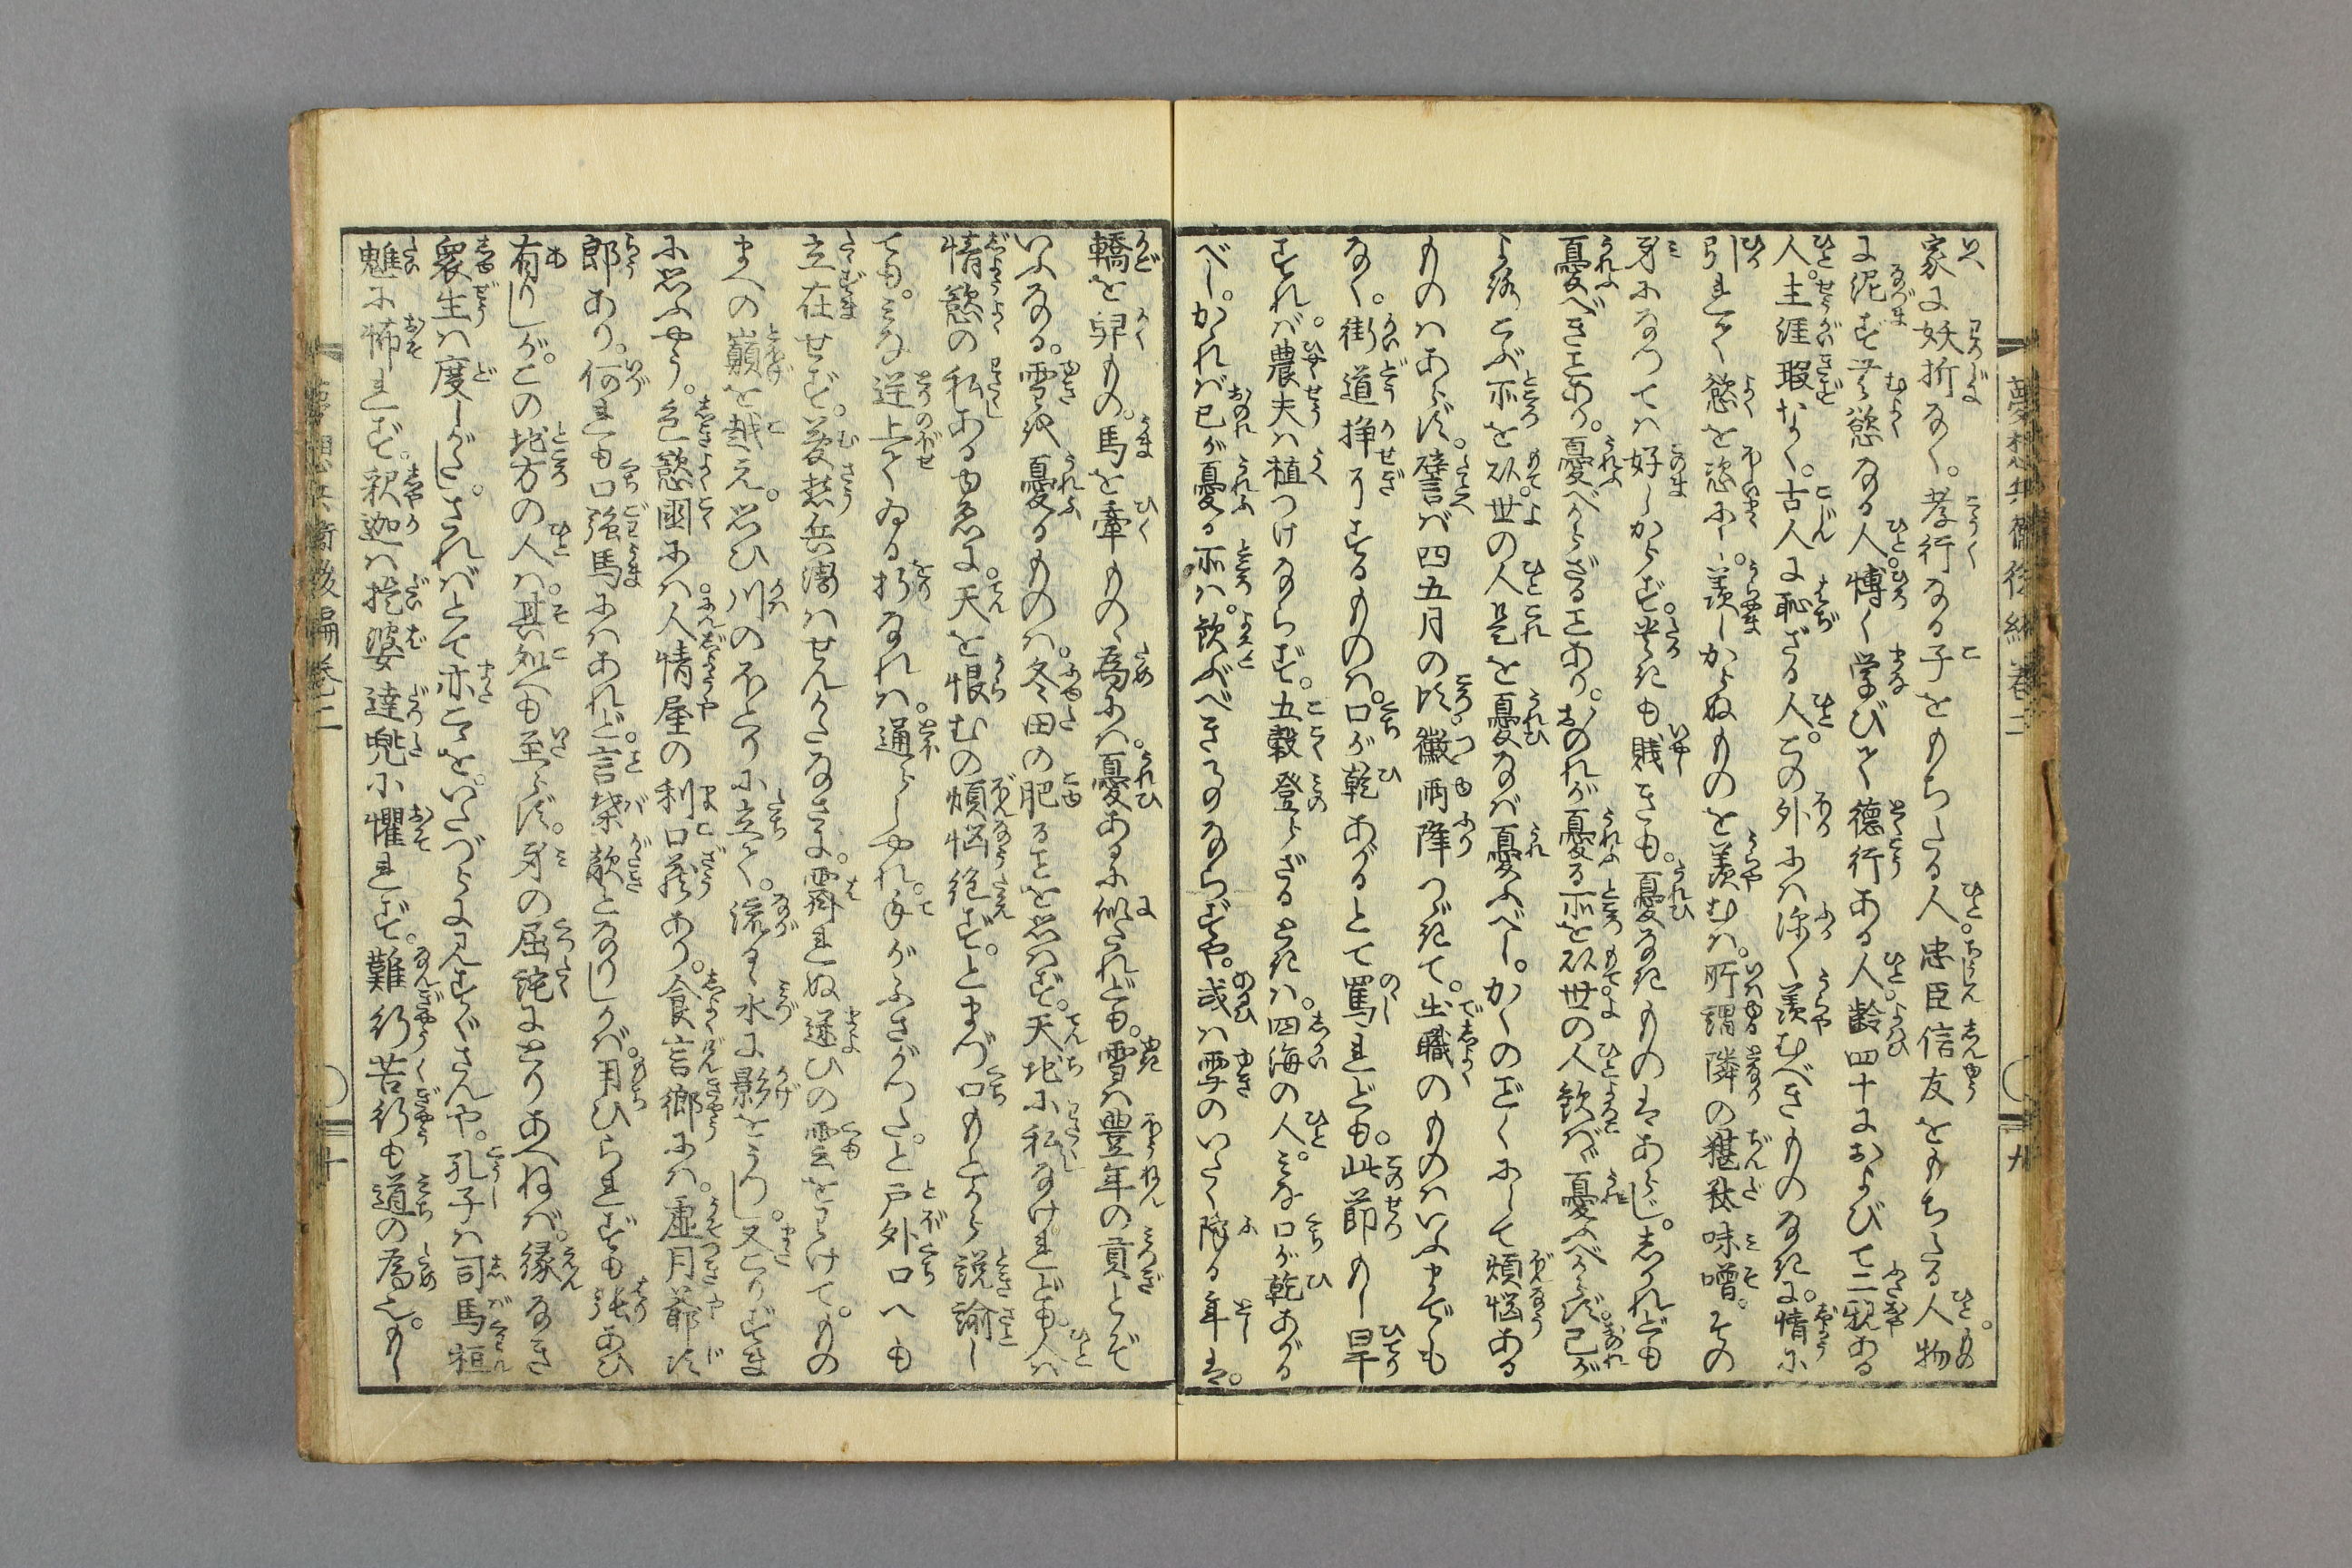 夢想兵衛後編巻二
九
家に妖折なく。孝行なる子をもちたる人。忠臣信友をもちたる人。物
に泥ず無慾なる人。博く学びて徳行ある人。齢四十におよびて二親ある
人。生涯瑕なく。古人に恥ざる人。この外には深く羨むべきものなきに。情に
引れて慾を恣にし。羨しからぬものを羨むは。所謂隣の糂粏味噌。その
身になつては好しからず。貴きも賎きも。憂なきものはあらじ。しかれども
憂べきことあり。憂べからざることあり。おのれが憂る所を以世の人歓ばゞ憂ふべからず。己が
よろこぶ所を以世の人是を憂なば憂ふべし。かくのごとくにして煩悩ある
ものはあらず。譬ば四五月の比黴雨降つゞきて。出職のものはいふまでも
なく。街道挊ぎするものは。口が乾あがるとて罵れども。此節もし旱
すれば。農夫は植つけならず。五穀登らざるときは。四海の人。みな口が乾あがる
べし。かゝれば己が憂る所は。歓ぶべきことならずや。或は雪のいたく降る年は。
轎を舁もの。馬を牽もの。為には。憂あるに似たれども。雪は豊年の貢とぞ
いふなる。雪を憂るものは。冬田の肥ることを思はず。天地に私なけれども。人は
情慾の私あるゆゑに。天を恨むの煩悩絶ず。とまづ口もとから説諭し
ても。みな逆上てゐる折なれば。通らしやれ。手がふさがつた。と戸外口へも
立在せず。夢想兵衛はせんかたなさに。霽れぬ迷ひの雲をわけて。もの
まへの巓を越え。思ひ川のほとりに立て。流るゝ水に影をうつし。又こりずま
に思ふやう。色慾国には。人情屋の利口蔵あり。食言郷には。虚月爺次
郎あり。何れも口強馬にはあれど。言葉敵となりしかば。用ひられずも張あひ
有りしが。この地方の人は。其処へも至らず。身の屈詫にとりあへねば。縁なき
衆生は度しがたし。さればとて亦こゝを。いたづらに見すぐさんや。孔子は司馬桓
魋に怖れず。釈迦は提婆達兜に懼れず。難行苦行も道の為也。もし
夢想兵衛後編巻二
十